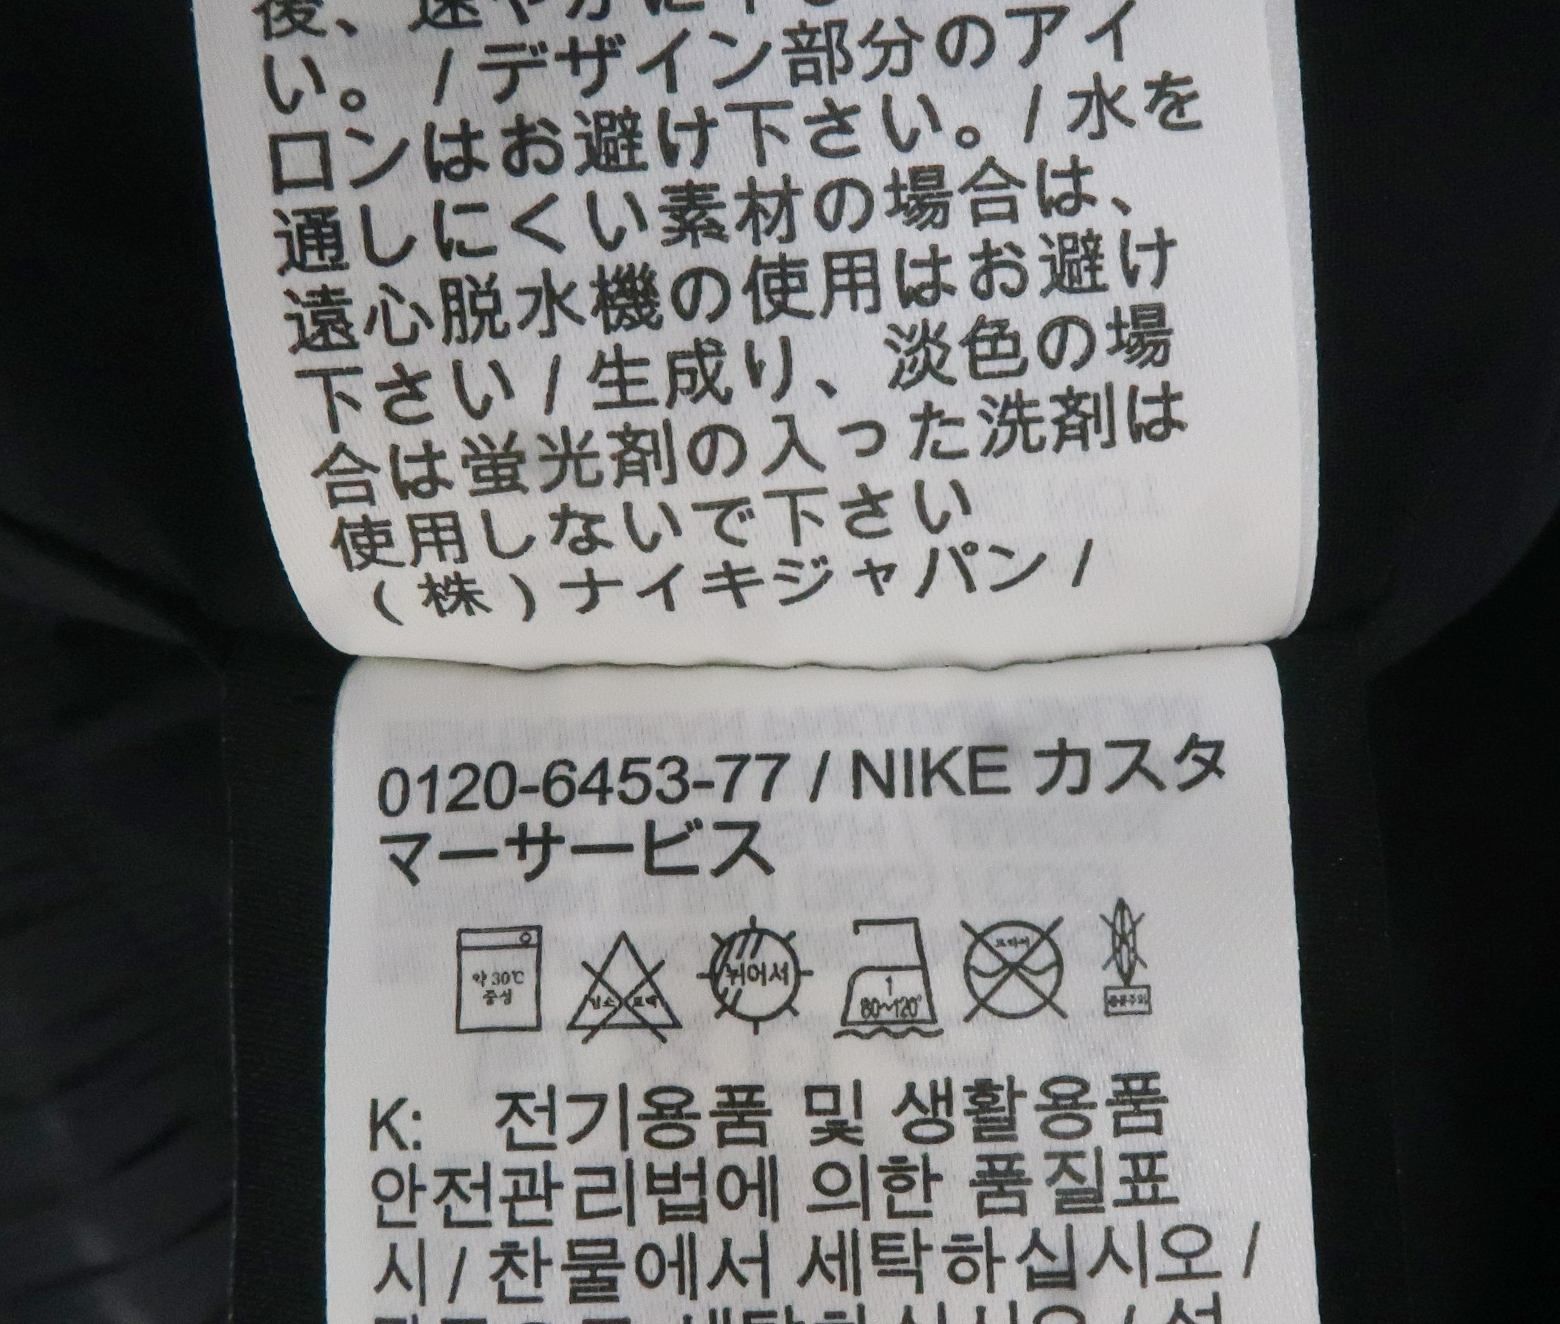 後、速やかに
い。 / デザイン部分のアイ
ロンはお避け下さい。/ 水を
通しにくい素材の場合は、
遠心脱水機の使用はお避け
下さい / 生成り、淡色の場
合は蛍光剤の入った洗剤は
使用しないで下さい
（株）ナイキジャパン /
0120-6453-77 / NIKE カスタ
マーサービス
약 30℃
중성
뉘어서
1
80~120°
K: 전기용품 및 생활용품
안전관리법에 의한 품질표
시 / 찬물에서 세탁하십시오 /
세탁하십시오 /